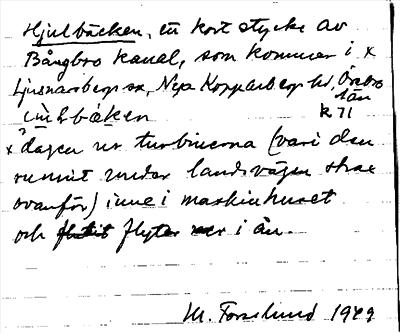 Hjulbäcken, ett kort stycke av
Bångbro kanal, som kommer i x
Ljusnarsbergs sn, Nya Kopparbergs hd, Örebro
län
k 71
x dagen ur turbinerna (vari den
runnit under landsvägen strax
ovanför) inne i maskinhuset
och flyter ner i ån.
M. Forslund 1949